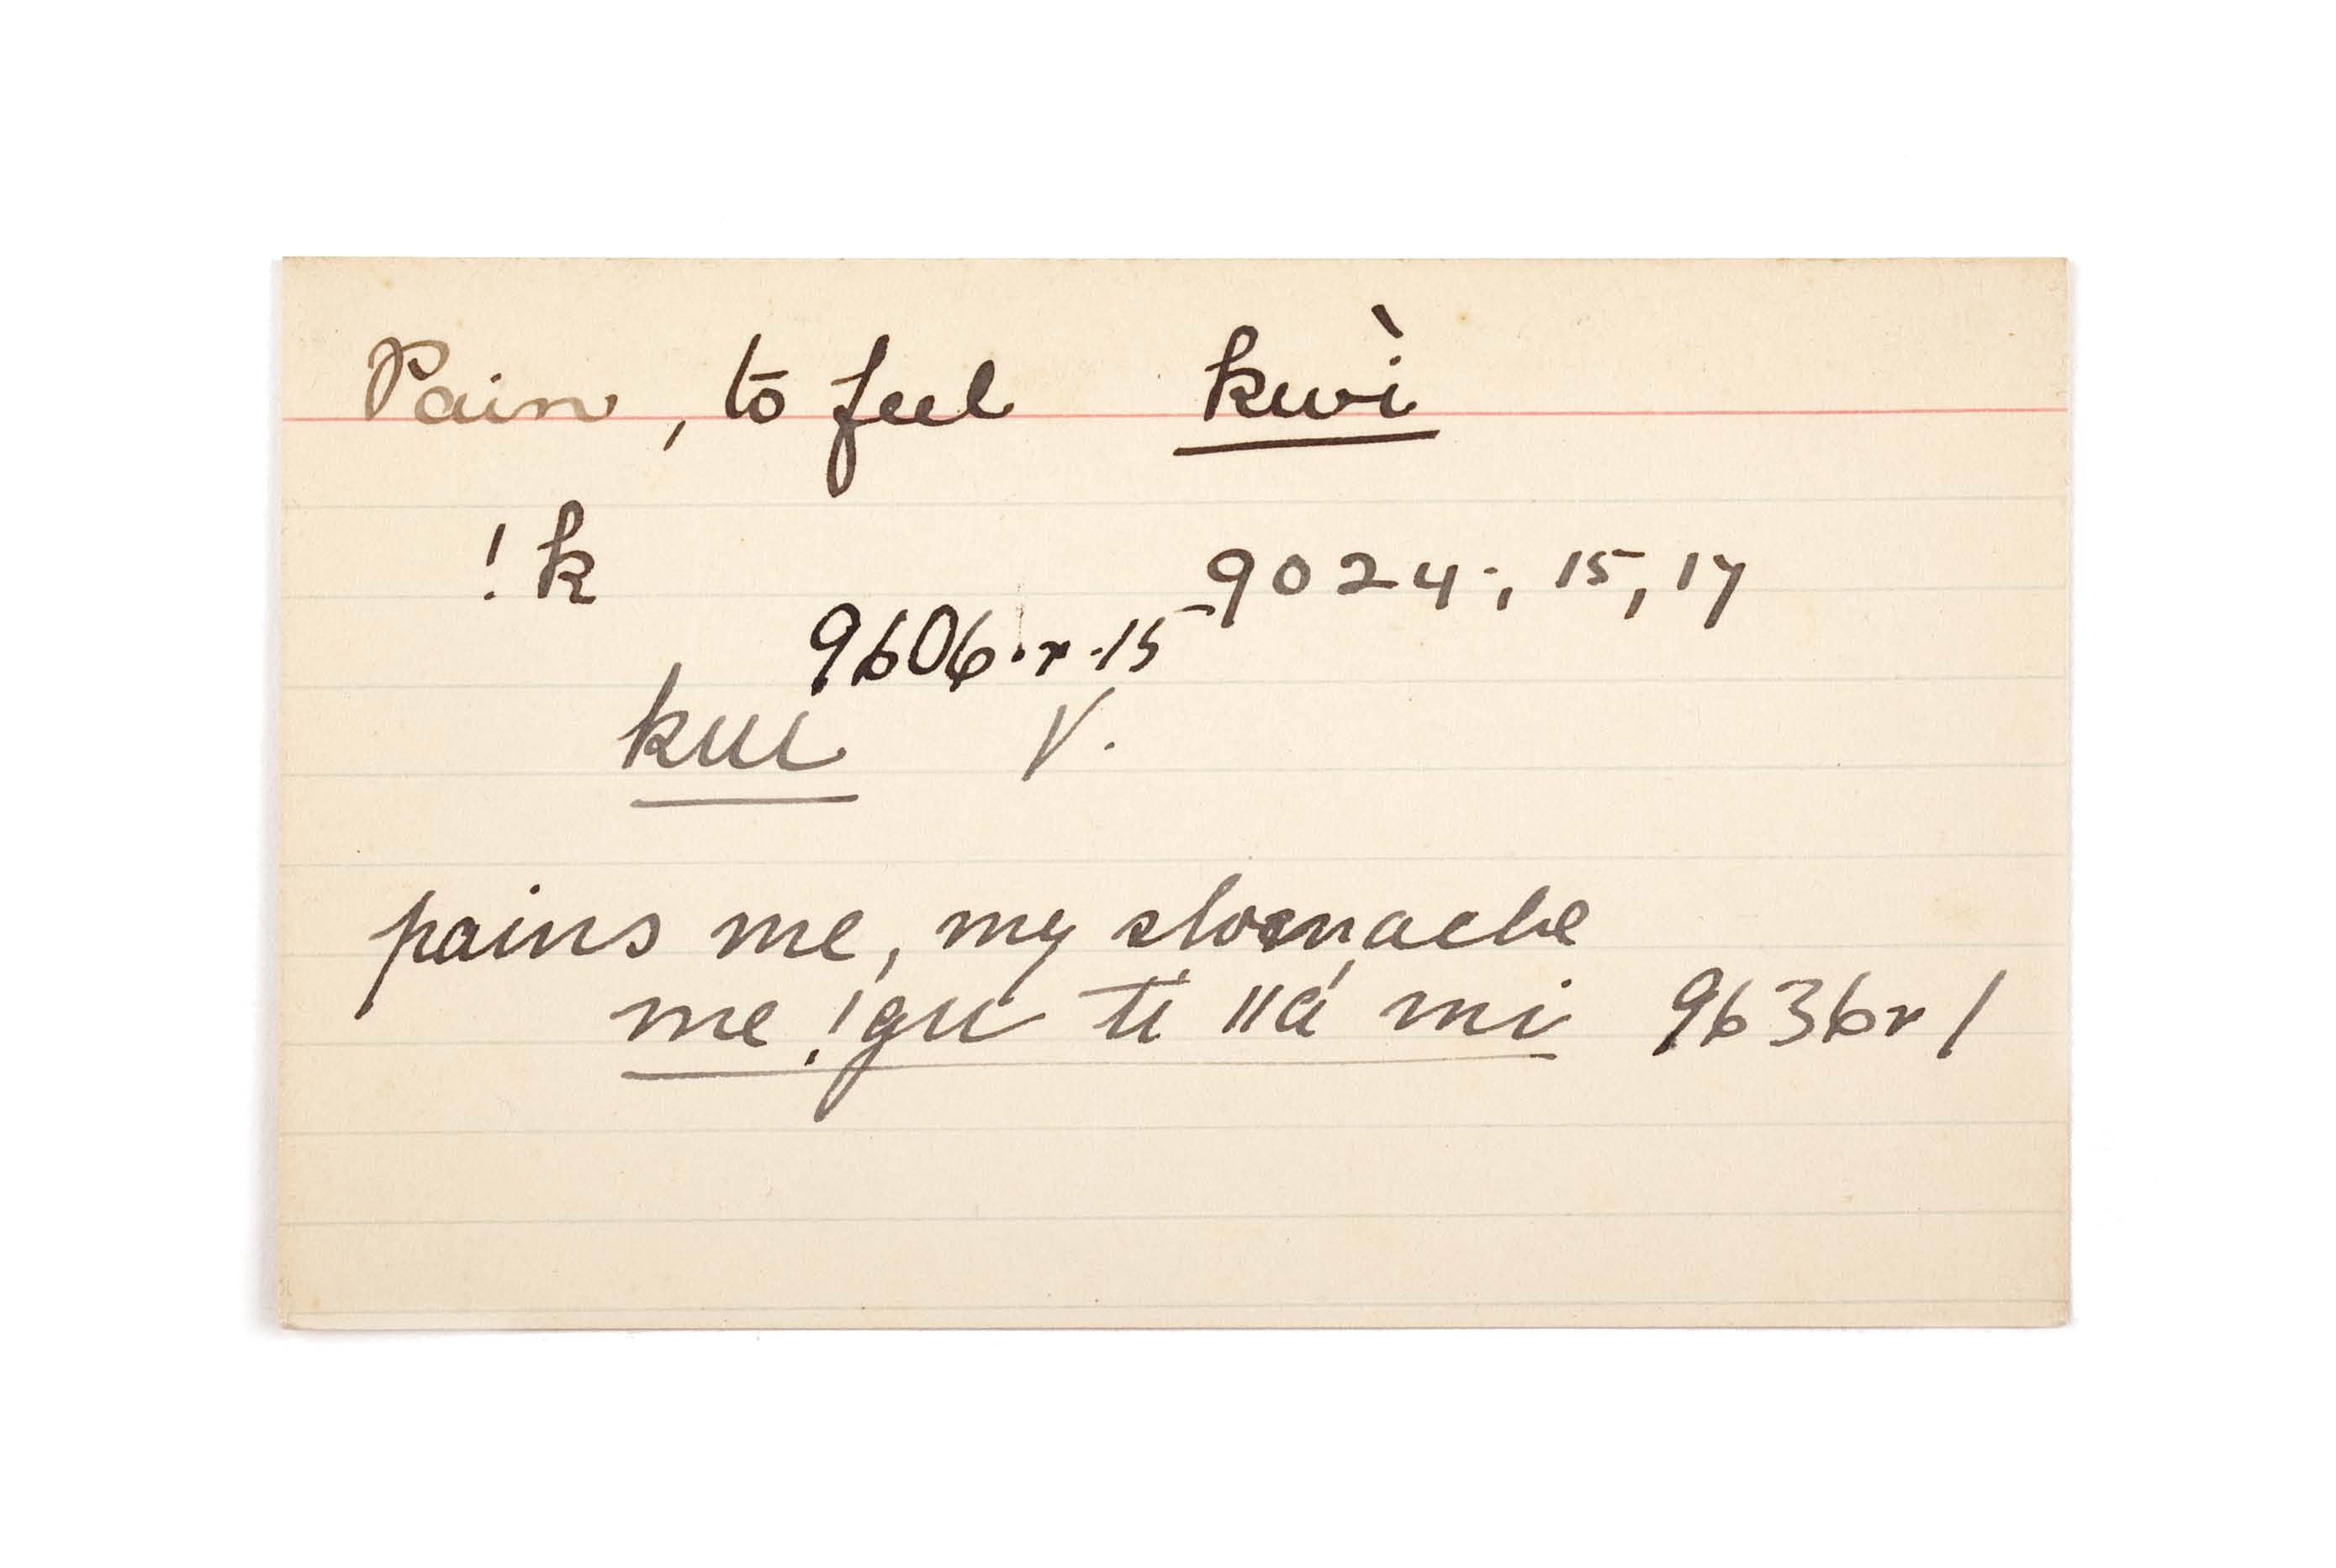 Pain, to feel kwì
!k 9024·, 15, 17
9606·r·15
kui V.
pains me, my stomache
me !gu ti ǁá mi 9636r1